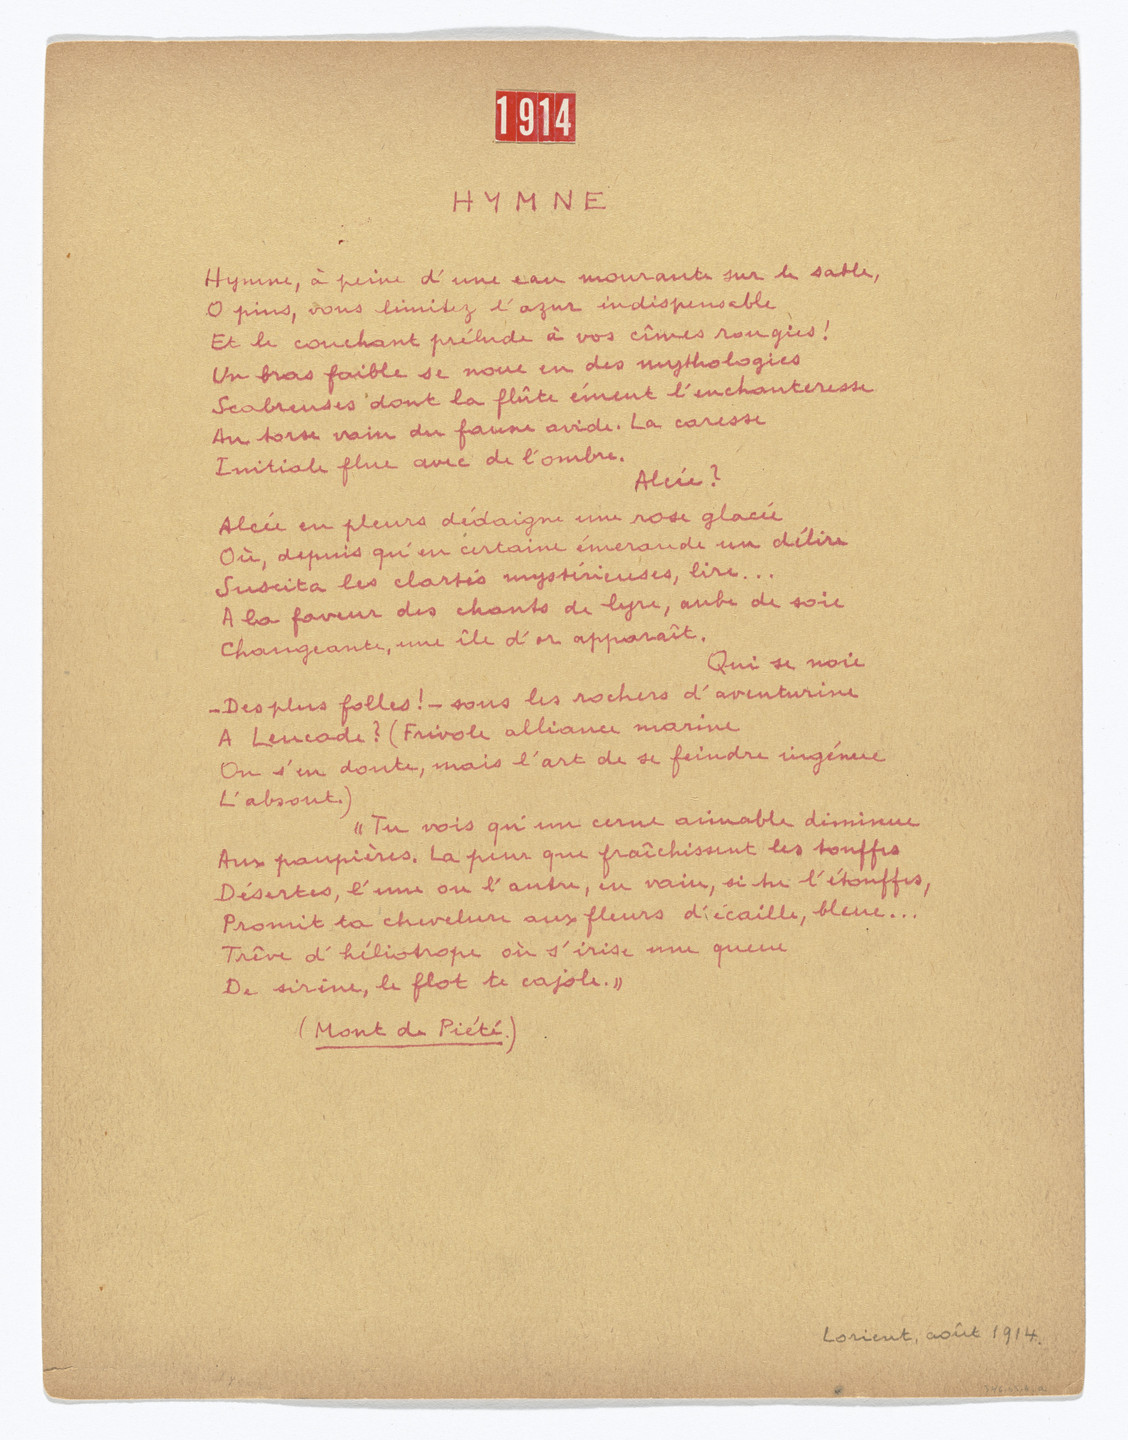 1914
HYMNE
Hymne, à peine d'une eau mourante sur le sable,
O pins, vous limitez l'azur indispensable
Et le couchant prélude à vos cîmes rougies!
Un bras faible se noue en des mythologies
Scabreuses dont la flûte émeut l'enchanteresse
Au torse vain du faune avide. La caresse
Initiale flue avec de l'ombre.
Alcée?
Alcée en pleurs dédaigne une rose glacée
Où, depuis qu'en certaine émeraude un délire
Suscita les clartés mystérieuses, lire...
A la faveur des chants de lyre, aube de soie
Changeante, une île d'or apparaît.
Qui se noie
—Des plus folles!— sous les rochers d'aventurine
A Leucade? (Frivole alliance marine
On s'en doute, mais l'art de se feindre ingénue
L'absout.)
"Tu vois qu'un cerne aimable diminue
Aux paupières. La peur que fraîchissent les touffes
Désertes, l'une ou l'autre, en vain, si tu l'étouffes,
Promit ta chevelure aux fleurs d'écaille, bleue...
Trêve d'héliotrope où s'irise une queue
De sirène, le flot te cajole."
(Mont de Piété.)
Lorient, août 1914.